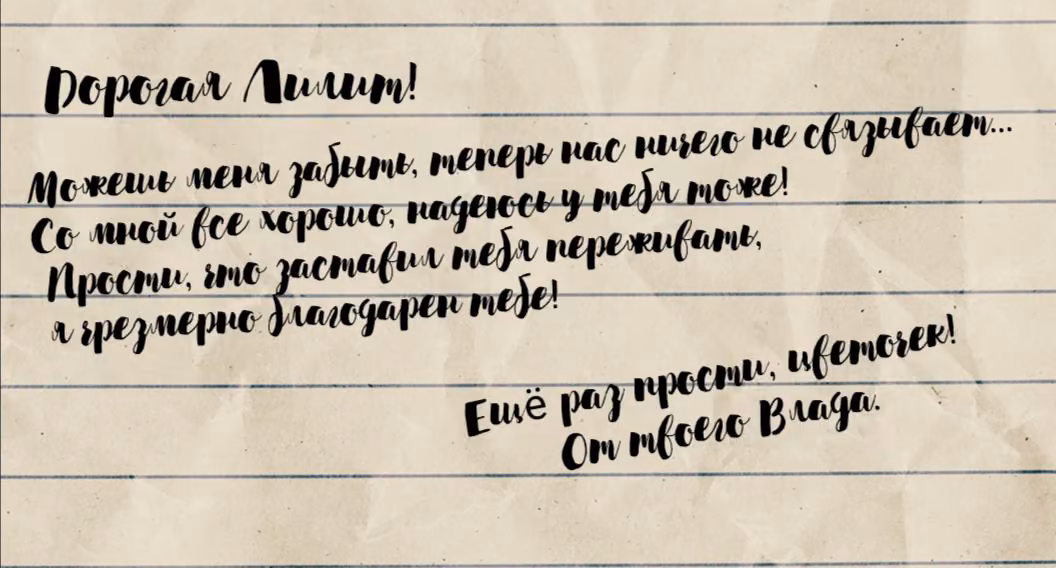 Дорогая Лилит!
Можешь меня забыть, теперь нас ничего не связывает...
Со мной все хорошо, надеюсь у тебя тоже!
Прости, что заставил тебя переживать,
я чрезмерно благодарен тебе!
Ещё раз прости, цветочек!
От твоего Влада.